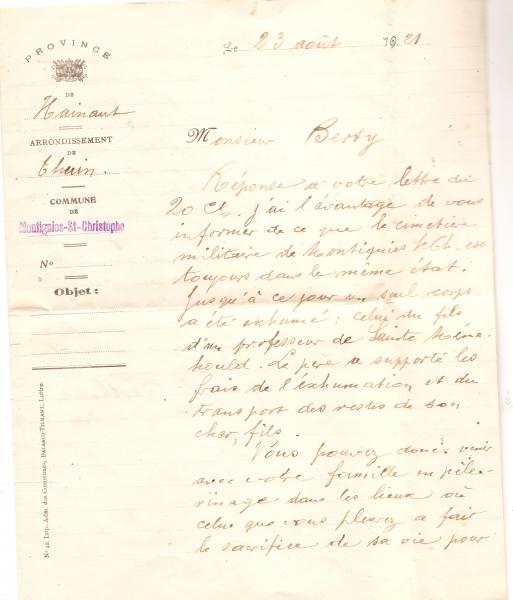 PROVINCE
DE
Hainaut
ARRONDISSEMENT
DE
Thuin.
COMMUNE
DE
Montignies-St-Christophe
No
Objet:
No 42. Imp. Adm. des Communes, Liége.
Le 23 août 1921
Monsieur Berty
Réponse à votre lettre du
20 Ct, j'ai l'avantage de vous
informer de ce que le cimetière
militaire de Montignies St Ch. est
toujours dans le même état.
Jusqu'à ce jour un seul corps
a été exhumé: celui du fils
d'un professeur de Sainte Méne-
hould. Le père a supporté les
frais de l'exhumation et du
transport des restes de son
cher fils.
Vous pouvez donc venir
avec votre famille en pèle-
rinage dans les lieux où
celui que vous pleurez a fait
le sacrifice de sa vie pour